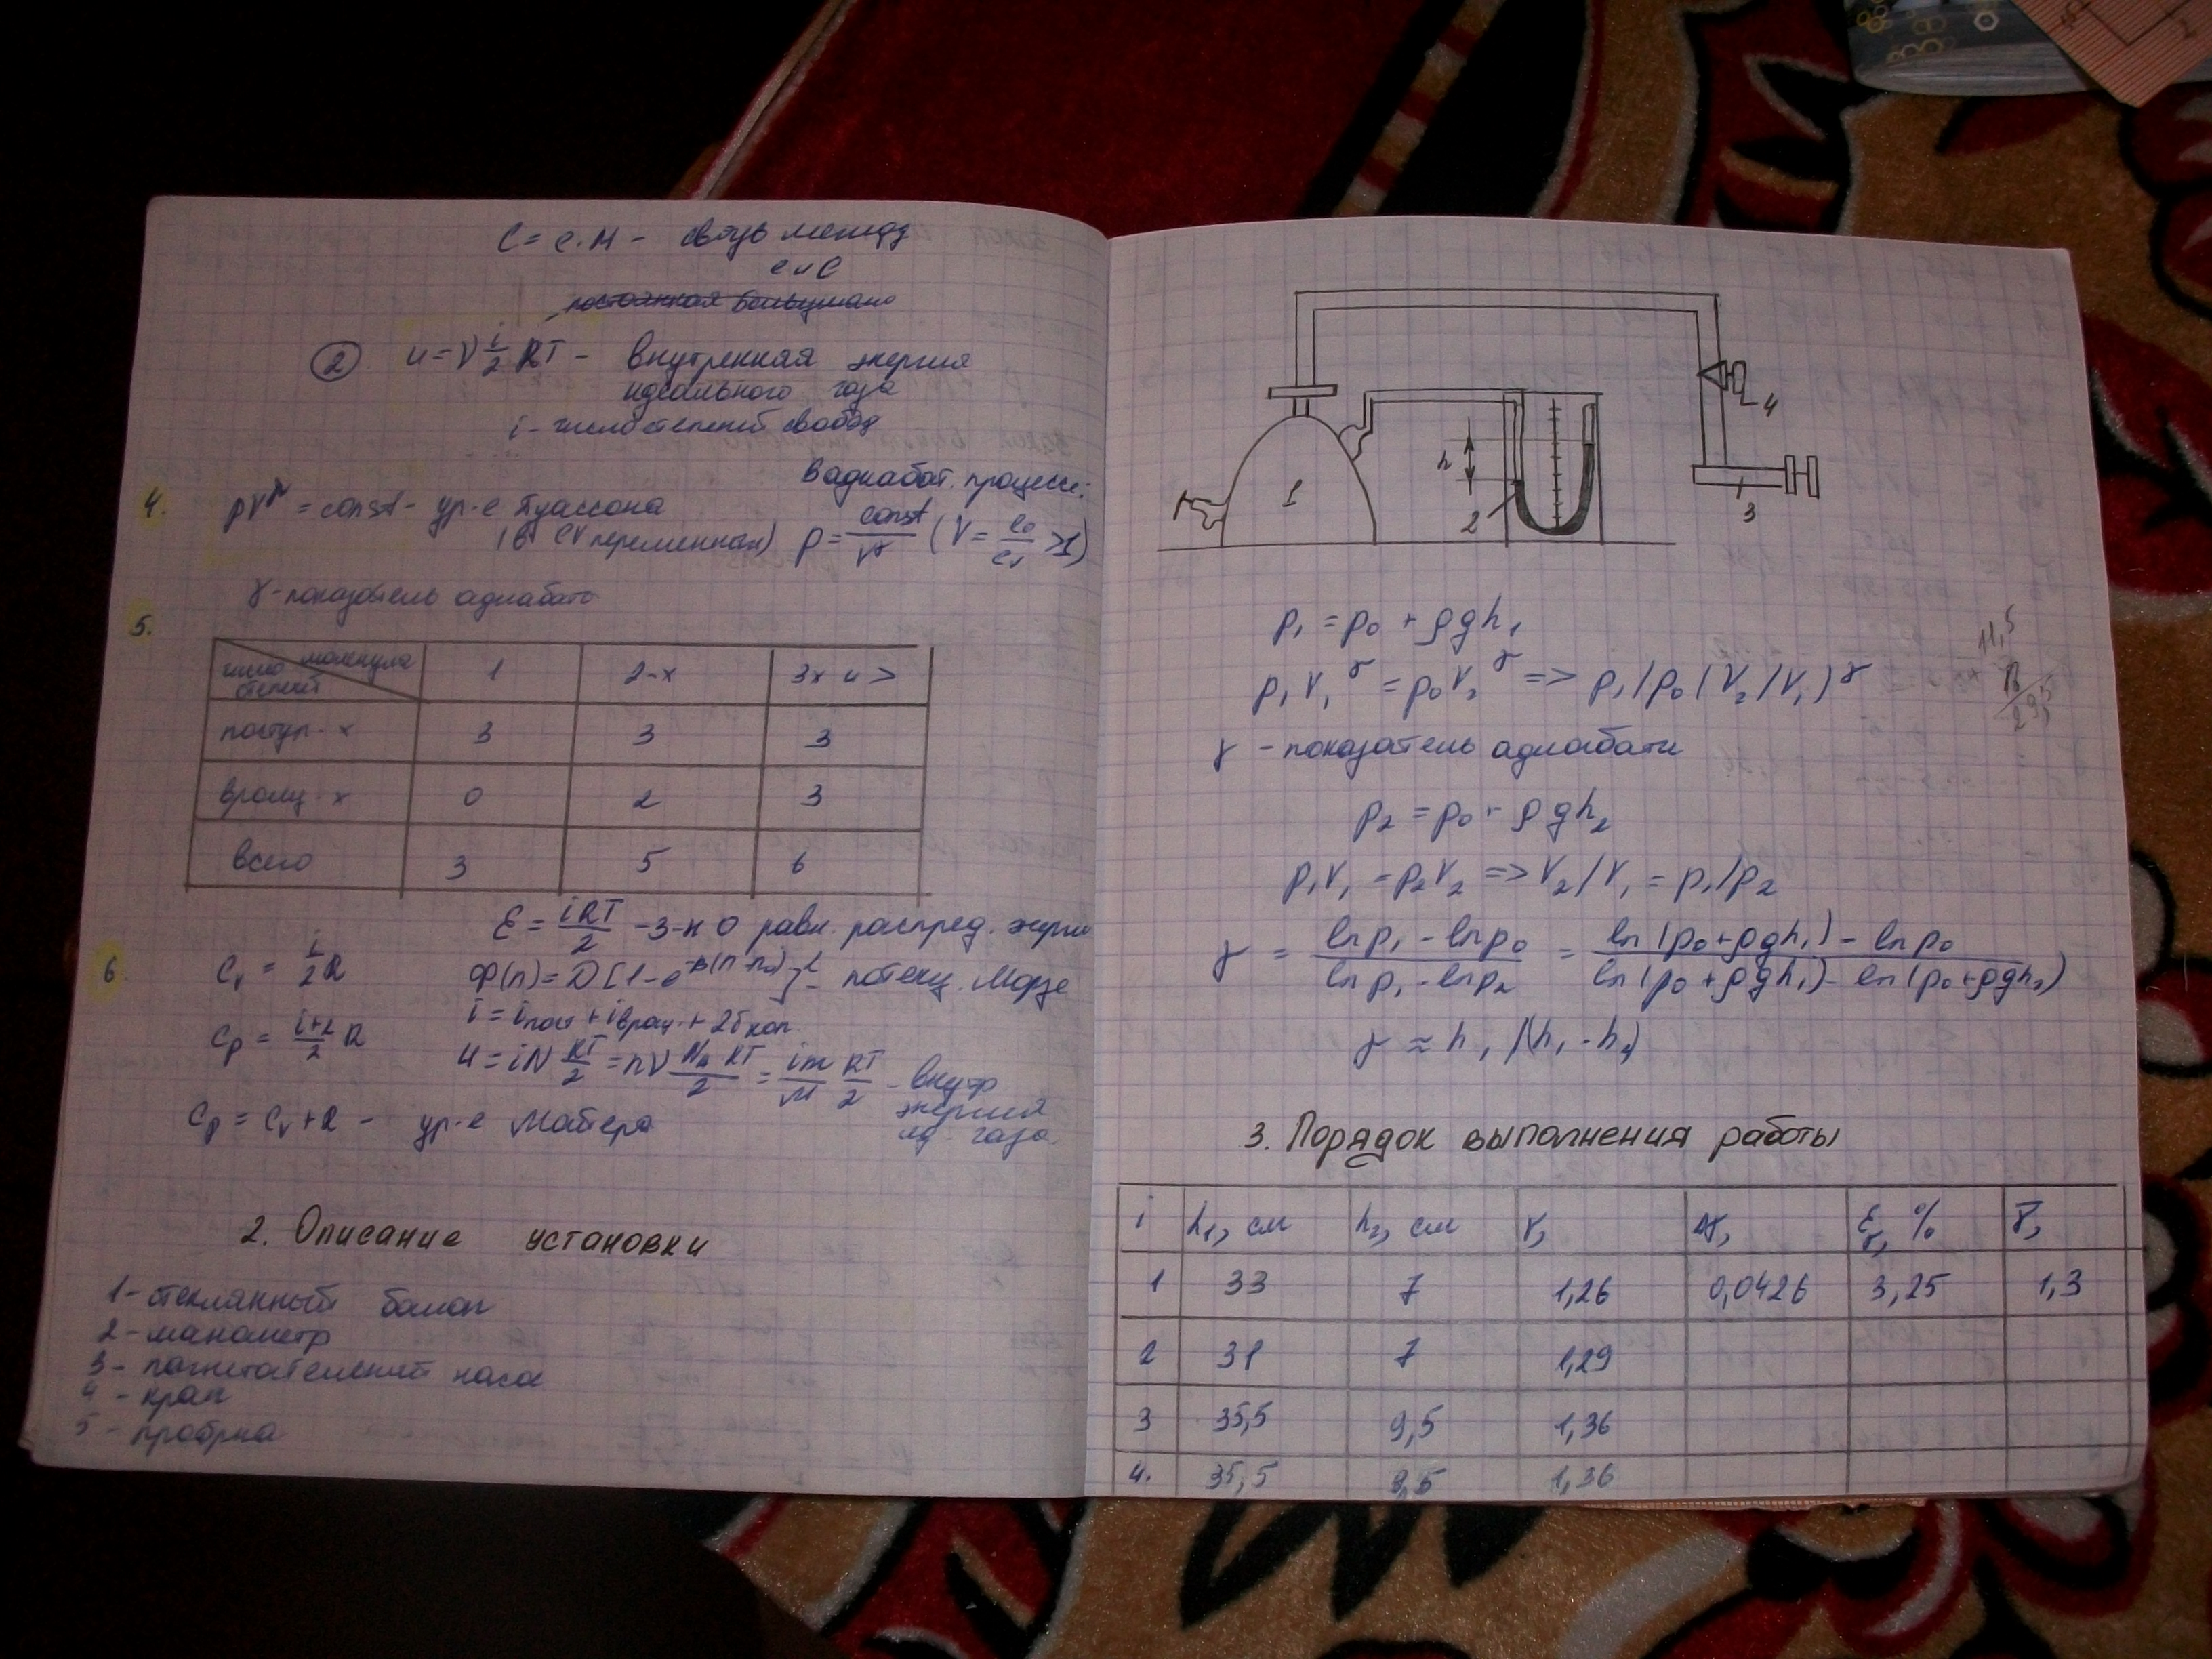 C = c·M - связь между
c и C
постоянная Больцмана
2. u = ν i/2 RT - внутренняя энергия
идеального газа
i - число степеней свобод
4. pV^γ = const - ур-е Пуассона
В адиабат. процессе:
p = const/V^γ (γ = cp/cv > 1)
γ - показатель адиабаты
5.
число степеней молекула 1 2-х 3х и >
поступ-х 3 3 3
вращ-х 0 2 3
всего 3 5 6
ε = iRT/2 - З-н О равн. распред. энерги
6. Cv = i/2 R
Ф(r) = D[1-e^-β(r-r0)]² - потенц. Морзе
i = iпост + iвращ + 2iкол
Cp = i+2/2 R
u = iN RT/2 = nν NA RT/2 = im/M RT/2 - внутр
энергия
ид. газа
Cp = Cv + R - ур-е Майера
2. Описание установки
1 - стеклянный балон
2 - манометр
3 - нагнетательный насос
4 - кран
5 - пробрка
h
1
2
3
4
p₁ = p₀ + ρgh₁
p₁V₁^γ = p₀V₂^γ => p₁/p₀ (V₂/V₁)^γ
11,5
γ - показатель адиабаты
p₂ = p₀ + ρgh₂
p₁V₁ = p₂V₂ => V₂/V₁ = p₁/p₂
γ = lnp₁ - lnp₀ / lnp₁ - lnp₂ = ln(p₀+ρgh₁) - lnp₀ / ln(p₀+ρgh₁) - ln(p₀+ρgh₂)
γ ≈ h₁/(h₁-h₂)
3. Порядок выполнения работы
i h₁, см h₂, см γ, Δγ, εγ, % γ̄,
1 33 7 1,26 0,0426 3,25 1,3
2 31 7 1,29
3 35,5 9,5 1,36
4. 35,5 9,5 1,36